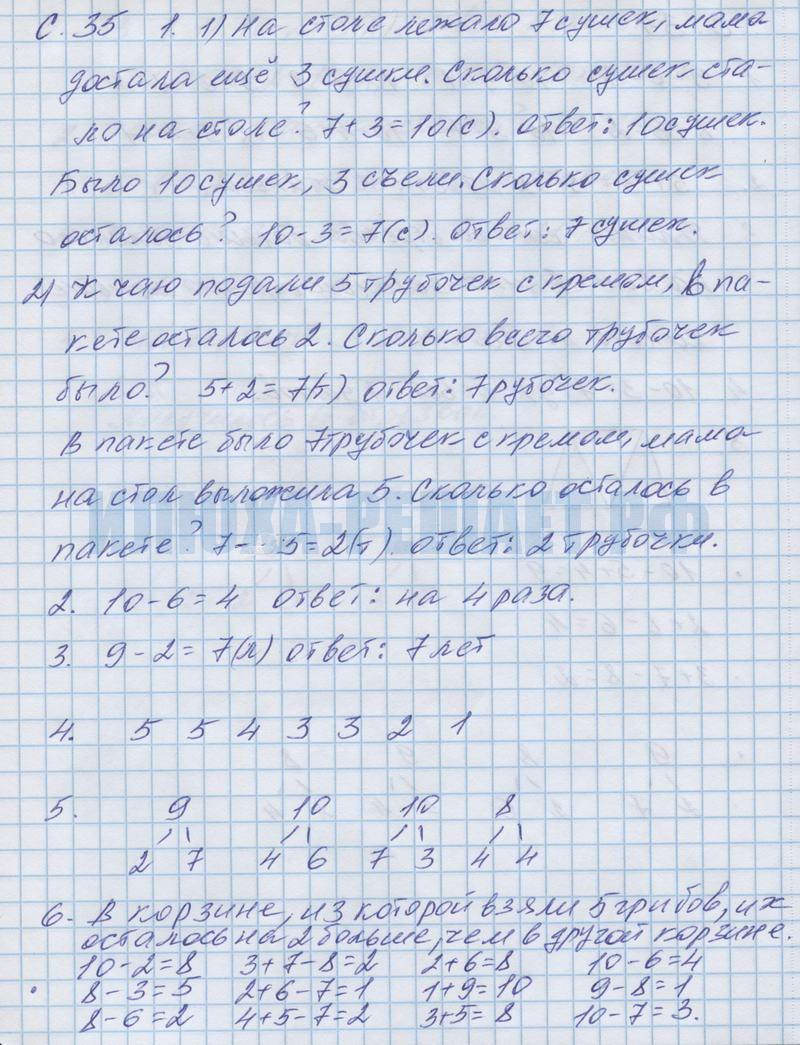 С. 35 1. 1) На столе лежало 7 сушек, мама
достала ещё 3 сушки. Сколько сушек ста-
ло на столе? 7+3=10(с). Ответ: 10 сушек.
Было 10 сушек, 3 съели. Сколько сушек
осталось? 10-3=7(с). Ответ: 7 сушек.
2) К чаю подали 5 трубочек с кремом, в па-
кете осталось 2. Сколько всего трубочек
было? 5+2=7(т) ответ: 7 рубочек.
В пакете было 7 трубочек с кремом, мама
на стол выложила 5. Сколько осталось в
пакете? 7-5=2(т). ответ: 2 трубочки.
2. 10-6=4 ответ: на 4 раза.
3. 9-2=7(л) ответ: 7 лет
4. 5 5 4 3 3 2 1
5. 9 10 10 8
2 7 4 6 7 3 4 4
6. В корзине, из которой взяли 5 грибов, их
осталось на 2 больше, чем в другой корзине.
10-2=8 3+7-8=2 2+6=8 10-6=4
8-3=5 2+6-7=1 1+9=10 9-8=1
8-6=2 4+5-7=2 3+5=8 10-7=3.